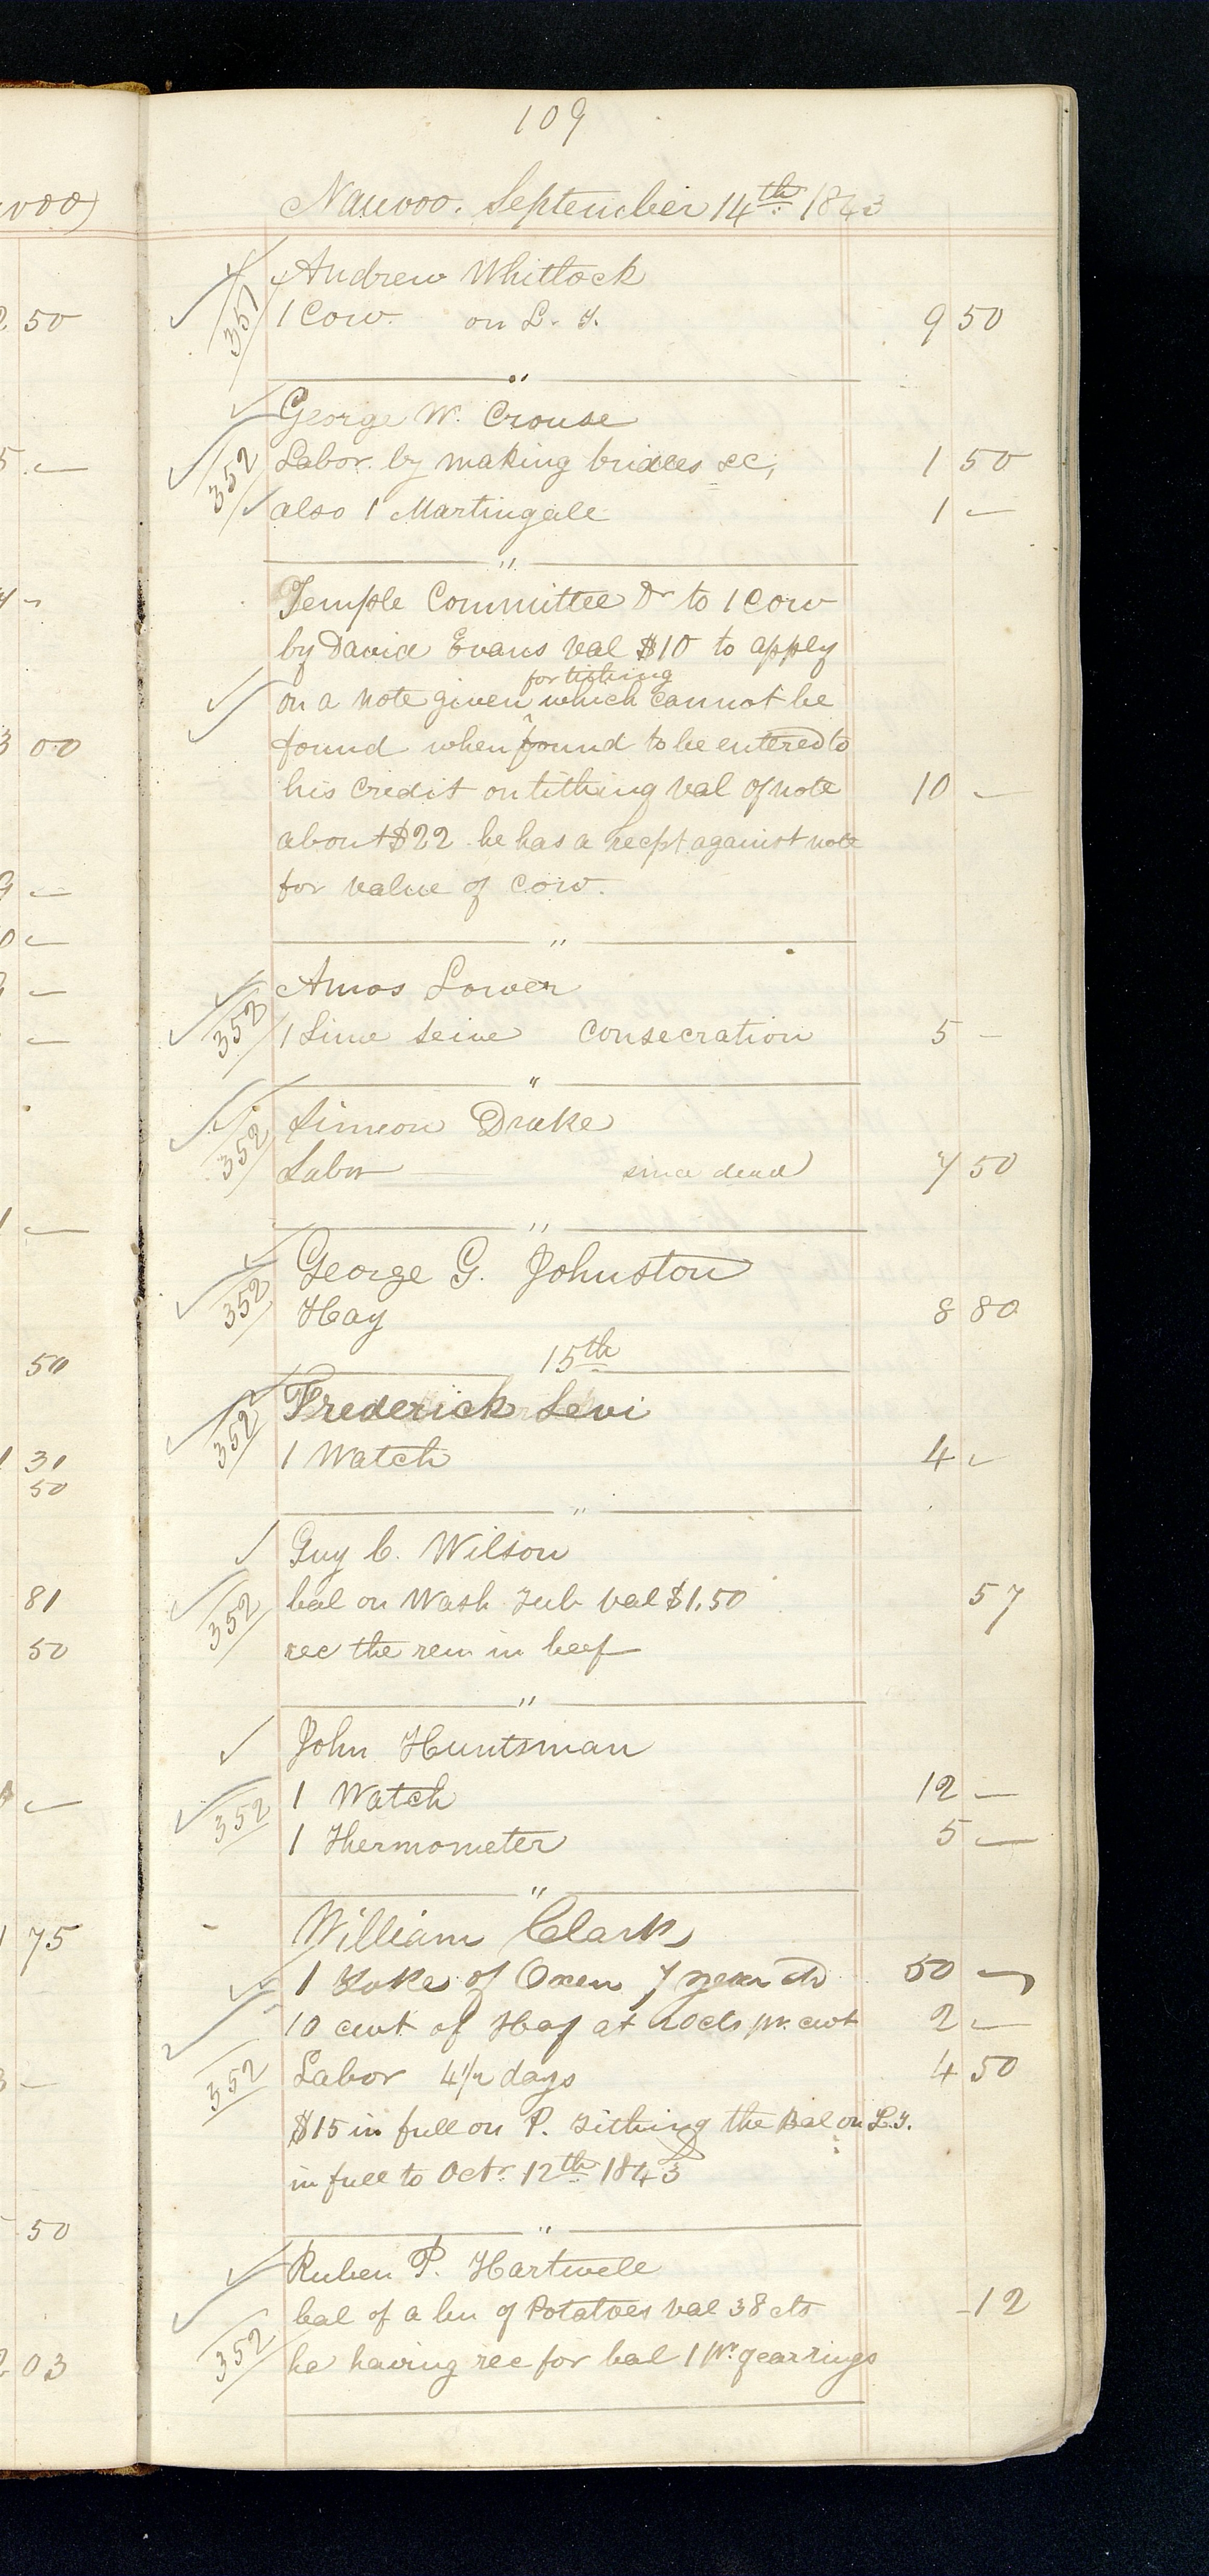 109
Nauvoo. September 14th 1843
Andrew Whitlock
351 1 Cow. on L. T. 9 50
"
George W. Crouse
352 Labor by making bridles &c, 1 50
also 1 Martingale 1 —
"
Temple Committee Dr to 1 Cow
by David Evans val $10 to apply
for tithing
on a note given ^ which cannot be
found when found to be entered to
his credit on tithing val of note 10 —
about $22 he has a recpt against note
for value of cow.
"
Amos Lower
352 1 Sime Seine Consecration 5 —
"
Simeon Drake
352 Labor since dead 7 50
"
George G. Johnston
352 Hay 8 80
15th
Frederick Levi
352 1 Watch 4 —
"
Guy C. Wilson
352 bal on Wash Tub val $1.50 57
rec the rem in beef
"
John Huntsman
352 1 Watch 12 —
1 Thermometer 5 —
"
William Clark
1 Yoke of Oxen 7 year old 50 —
10 cwt of Hay at 20cts pr. cwt 2 —
352 Labor 4 1/2 days 4 50
$15 in full on P. Tithing the Bal on L.T.
in full to Octr 12th 1843
"
Ruben P. Hartwell
bal of a bu of Potatoes val 38 cts 12
352 he having rec for bal 1 pr. gearrings
voo)
2 50
5 —
4 —
3 00
9 —
0 —
—
—
1 —
50
1 31
50
81
50
—
1 75
3 —
50
2 03